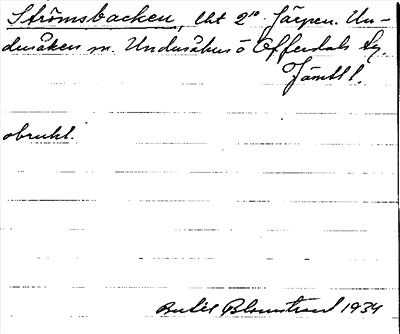 Strömsbacken, lht 2ⁿᵒ Järpen. Un-
dersåken m. Undersåkers o Offerdals tg.
Jämtl l.
obrukl.
Bertil Blomstrand 1934